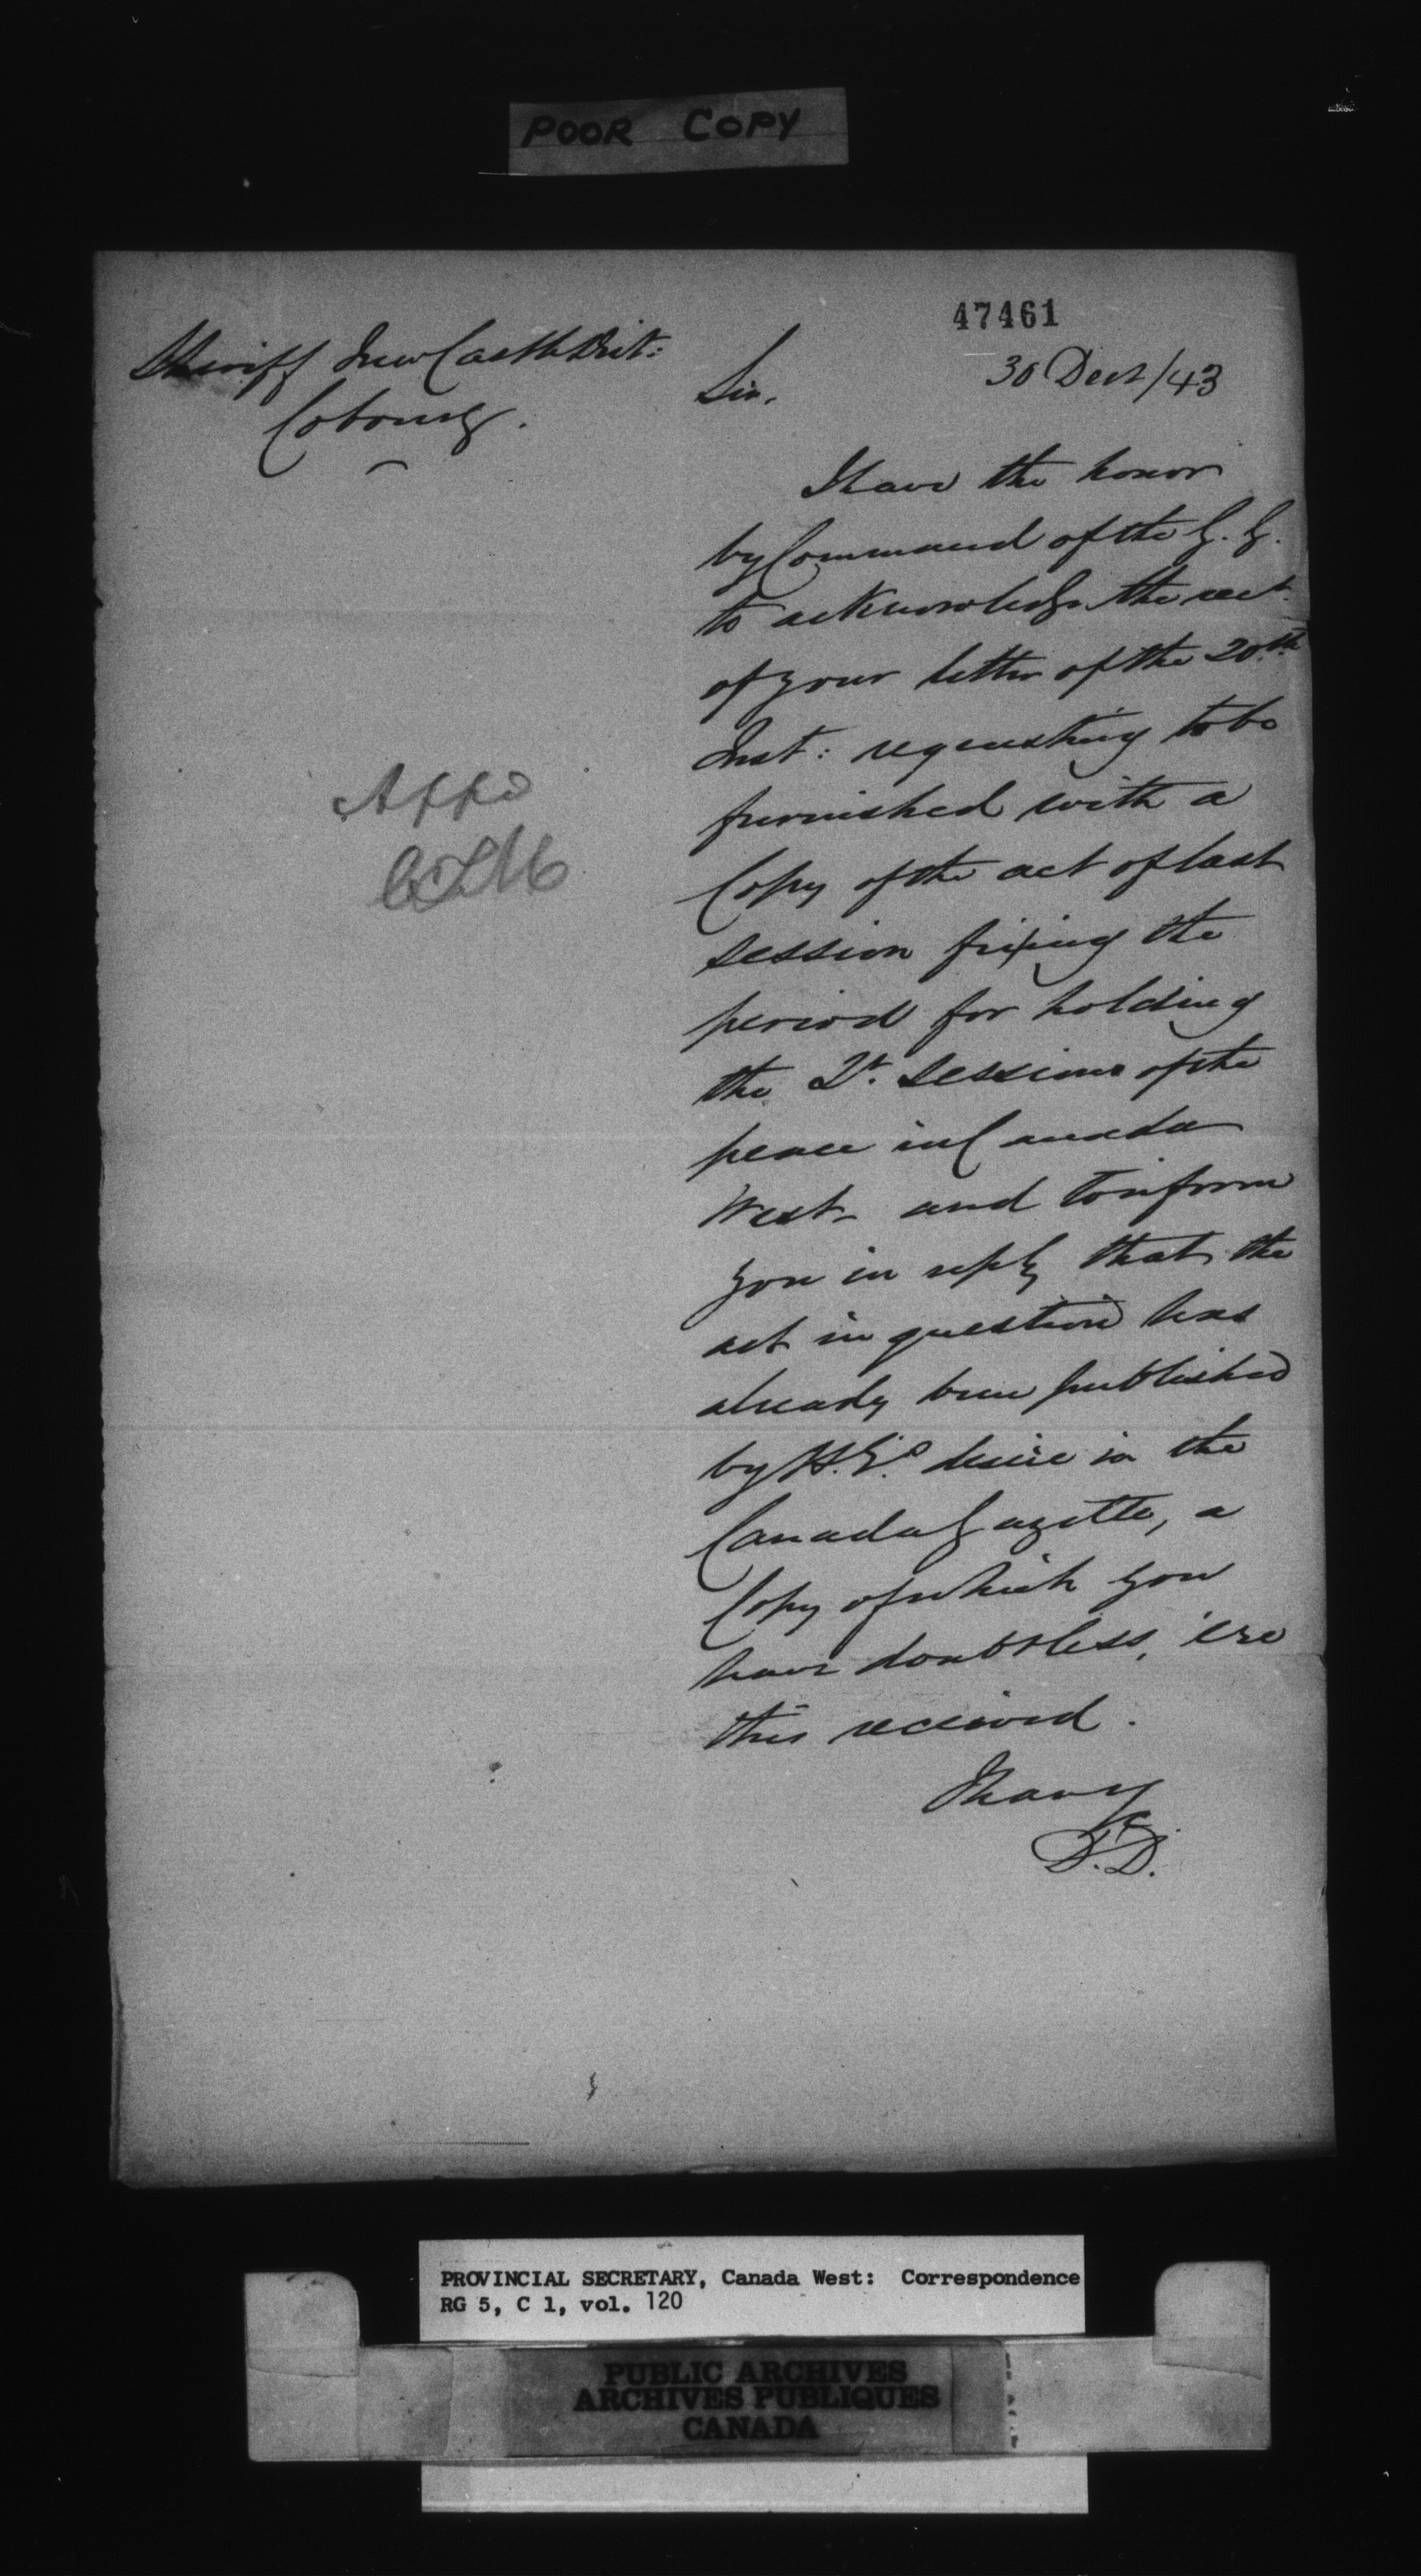 POOR COPY
47461
Sheriff New Castle Dist:
Cobourg.
30 Decr/43
Sir,
I have the honor
by Command of the G. G.
to acknowledge the rect.
of your letter of the 20th
Inst: requesting to be
furnished with a
Copy of the act of last
session fixing the
period for holding
the Qr. Sessions of the
peace in Canada
West - and to inform
you in reply that the
act in question has
already been published
by H. E.s desire in the
Canada Gazette, a
Copy of which you
have doubtless, 'ere
this received.
I have &c
D.D.
PROVINCIAL SECRETARY, Canada West: Correspondence
RG 5, C 1, vol. 120
PUBLIC ARCHIVES
ARCHIVES PUBLIQUES
CANADA